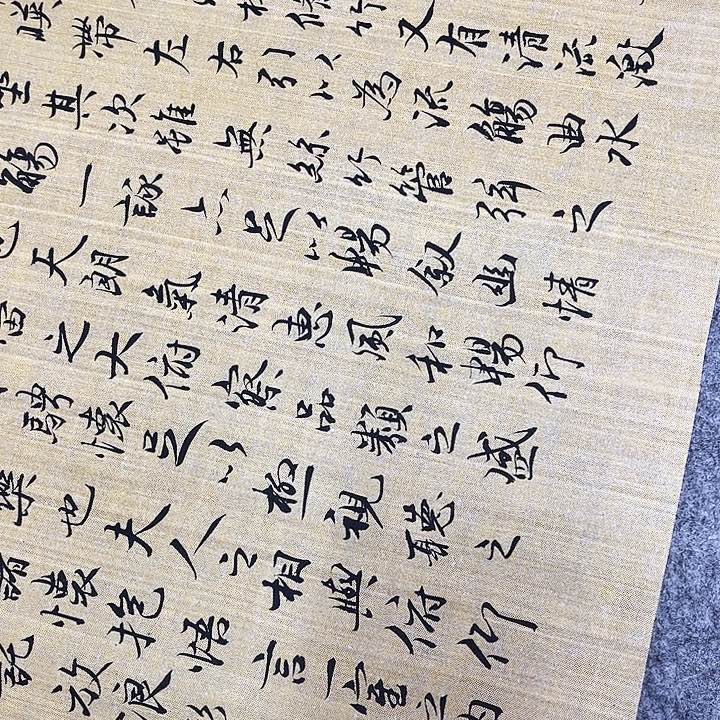 修竹又有清流激
映帶左右引以為流觴曲水
坐其次雖無絲竹管弦之
觴一詠亦足以暢敘幽情
也天朗氣清惠風和暢仰
宙之大俯察品類之盛
騁懷足以極視聽之
樂也夫人之相與俯仰
諸懷抱悟言一室之內
託放浪形